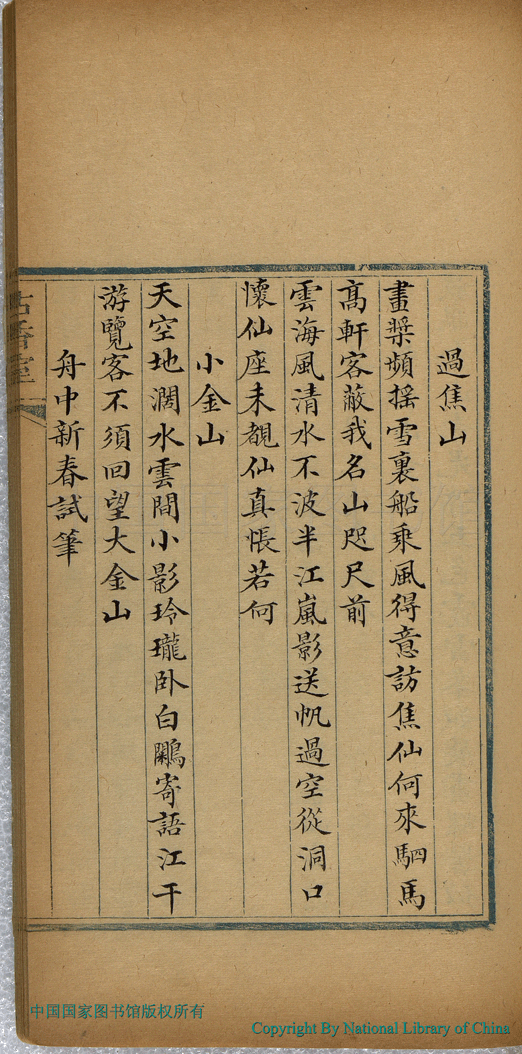 過焦山
畫槳頻摇雪裏船乘風得意訪焦仙何來駟馬
髙軒客蔽我名山咫尺前
雲海風清水不波半江嵐影送帆過空從洞口
懷仙座未覩仙真悵若何
小金山
天空地濶水雲間小影玲瓏卧白鷴寄語江干
游覽客不須回望大金山
舟中新春試筆
中国国家图书馆版权所有
Copyright By National Library of China